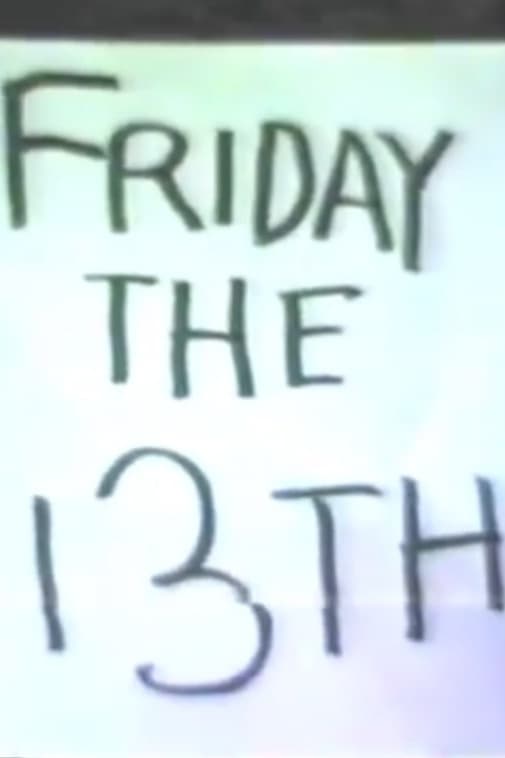 FRIDAY
THE
13TH